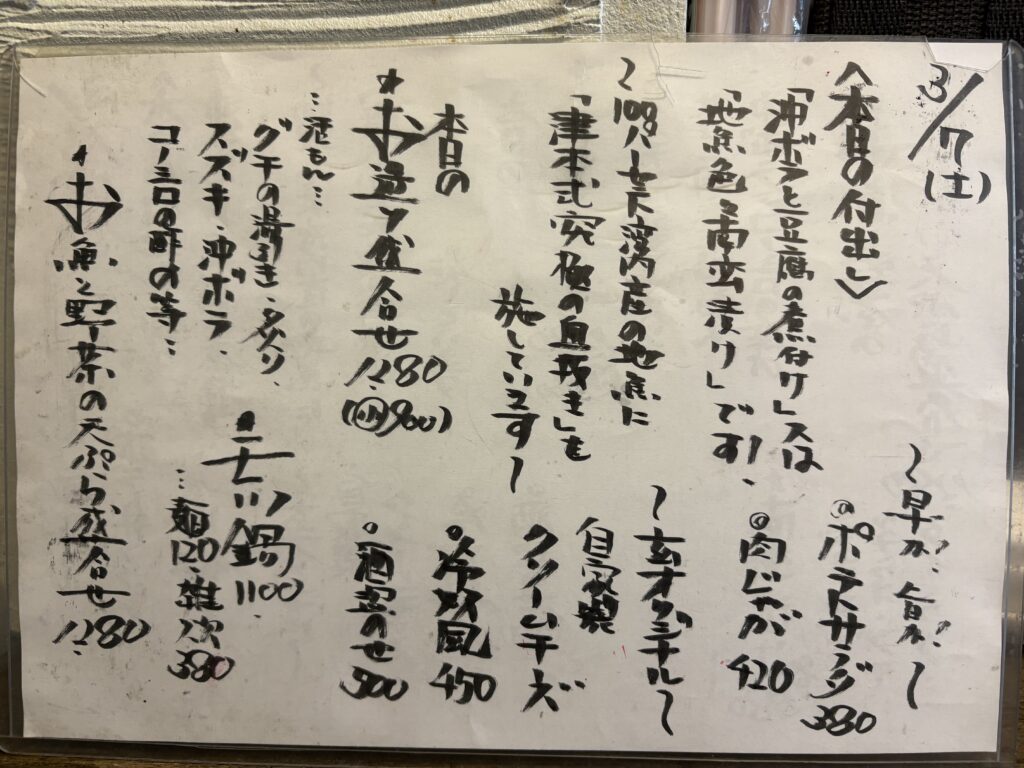 3/7(土)
〈本日の付出し〉
「沖ボラと豆腐の煮付け」又は
「地魚色々南蛮漬け」です!
〜100パーセト湾内産の地魚に
「津本式究極の血抜き」を
施しています〜
本日の
お造り盛合せ 1280
(小900)
…活もん…
グチの湯引き・炙り、
スズキ・沖ボラ、
コノシロの酢〆等…
お魚と野菜の天ぷら盛合せ 1280
〜早か、旨か!〜
◎ポテトサラダ 380
◎肉じゃが 420
〜玄オリジナル〜
自家製
クリームチーズ
○冷奴風 450
○酒盗のせ 500
もつ鍋 1100
…麺120 雑炊380